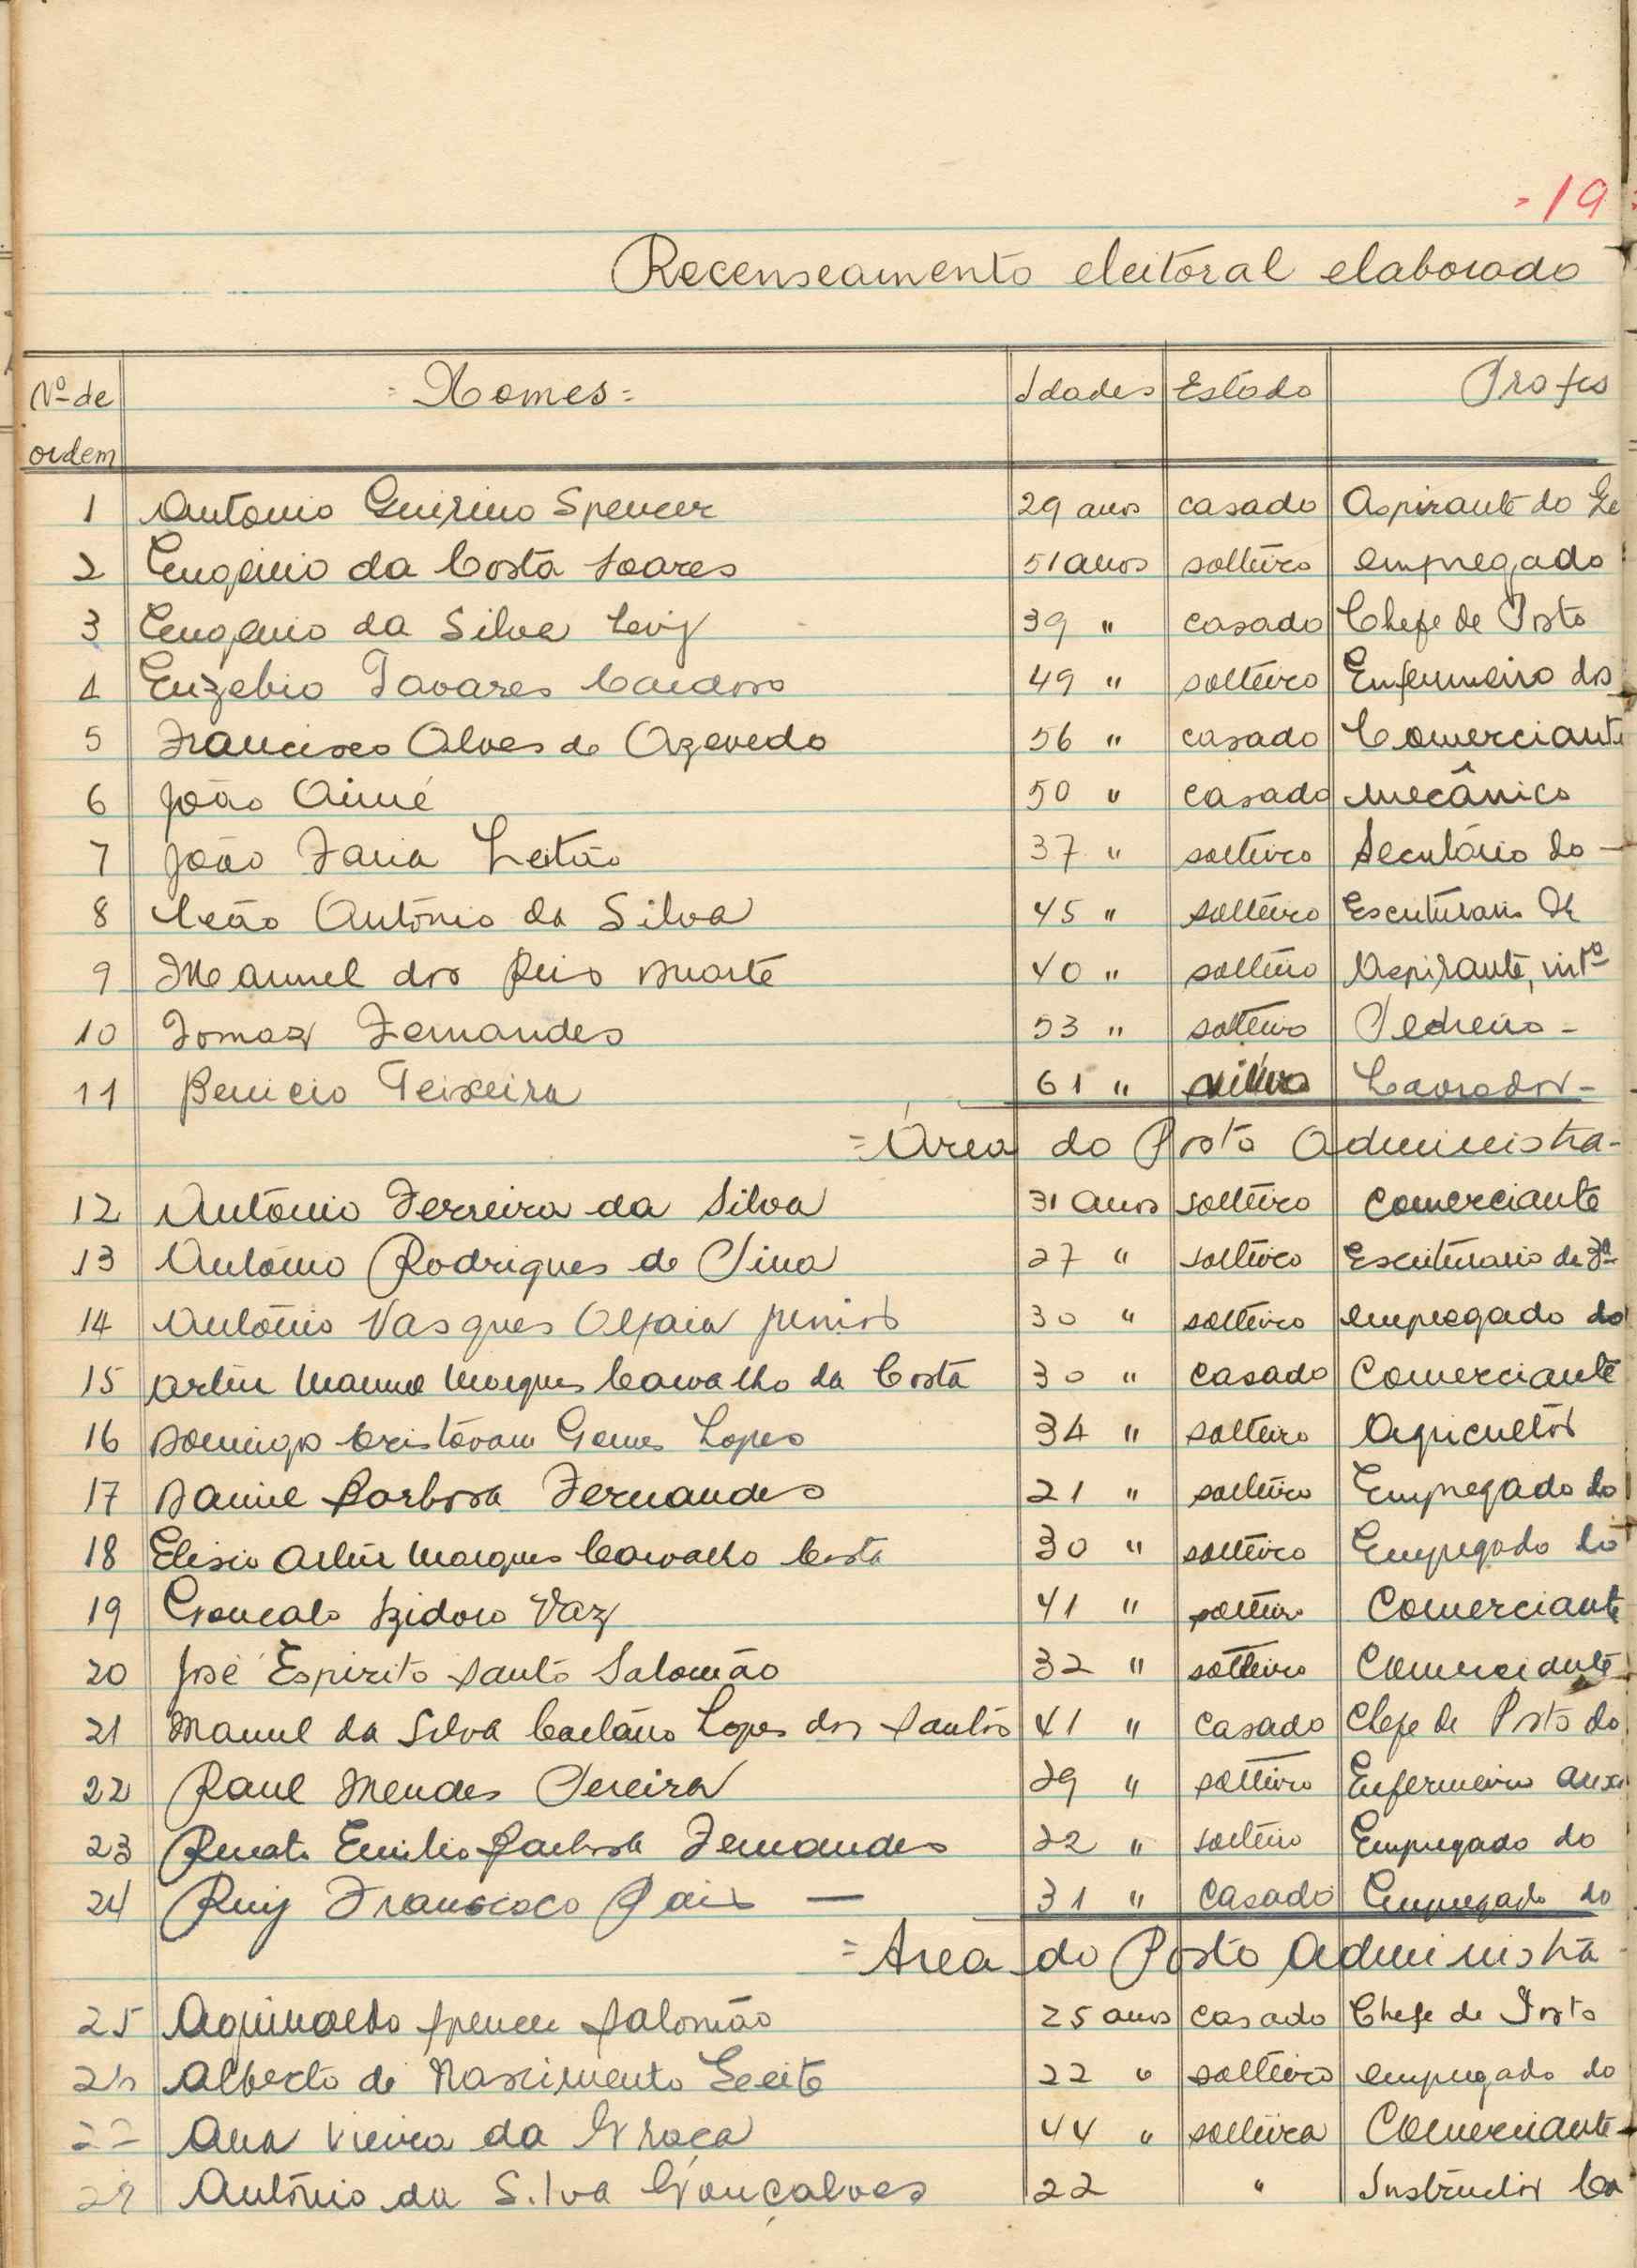 - 19
Recenseamento eleitoral elaborado
Nº de ordem = Nomes = Idades Estado Profis
1 António Quirino Spencer 29 anos casado Aspirante do
2 Eugénio da Costa Soares 51 anos solteiro empregado
3 Eugenio da Silva Levy 39 " casado Chefe de Posto
4 Euzebio Tavares Cardoso 49 " solteiro Enfermeiro dos
5 Francisco Alves de Azevedo 56 " casado Comerciante
6 João Aimé 50 " casado mecânico
7 João Faria Leitão 37 " solteiro Secretário do -
8 Leão António da Silva 45 " solteiro Escriturario de
9 Manuel dos Reis Duarte 40 " solteiro Aspirante, intº
10 Tomaz Fernandes 53 " solteiro Pedreiro -
11 Benicio Teixeira 61 " Lavrador -
= Área do Posto Administra-
12 António Ferreira da Silva 31 anos solteiro comerciante
13 António Rodrigues de Pina 27 " solteiro Escriturario de 3ª
14 António Vasques Olfaia junior 30 " solteiro empregado do
15 Artur Manuel Marques Carvalho da Costa 30 " casado Comerciante
16 Domingos Cristóvam Gomes Lopes 34 " solteiro Agricultor
17 Daniel Barbosa Fernandes 21 " solteiro Empregado do
18 Elisio Artur Marques Carvalho Costa 30 " solteiro Empregado do
19 Goncalo Izidoro Vaz 41 " solteiro Comerciante
20 José Espirito Santo Salomão 32 " solteiro Comerciante
21 Manuel da Silva Caetano Lopes dos Santos 41 " casado Chefe de Posto do
22 Raul Mendes Pereira 29 " solteiro Enfermeiro auxi
23 Renato Emilio Barbosa Fernandes 22 " solteiro Empregado do
24 Ruy Francisco Pais — 31 " casado Empregado do
= Area do Posto Administra
25 Aguinaldo Spencer Salomão 25 anos casado Chefe de Posto
26 Alberto do Nascimento Leite 22 " solteiro empregado do
27 Ana Vieira da Graça 44 " solteira Comerciante
28 António da Silva Gonçalves 22 " Instrutor